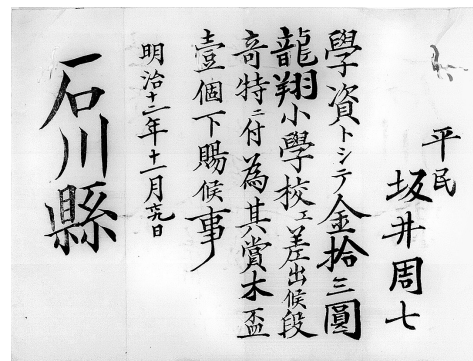 平民
坂井周七
學資トシテ金拾三圓
龍翔小學校ェ差出候段
奇特ニ付為其賞木盃
壹個下賜候事
明治十二年十一月廿九日
石川縣